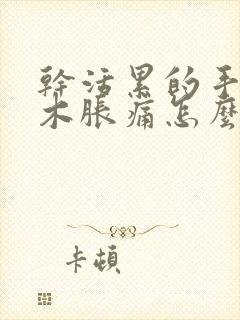 幹活累的手
木脹痛怎麼
卡頓